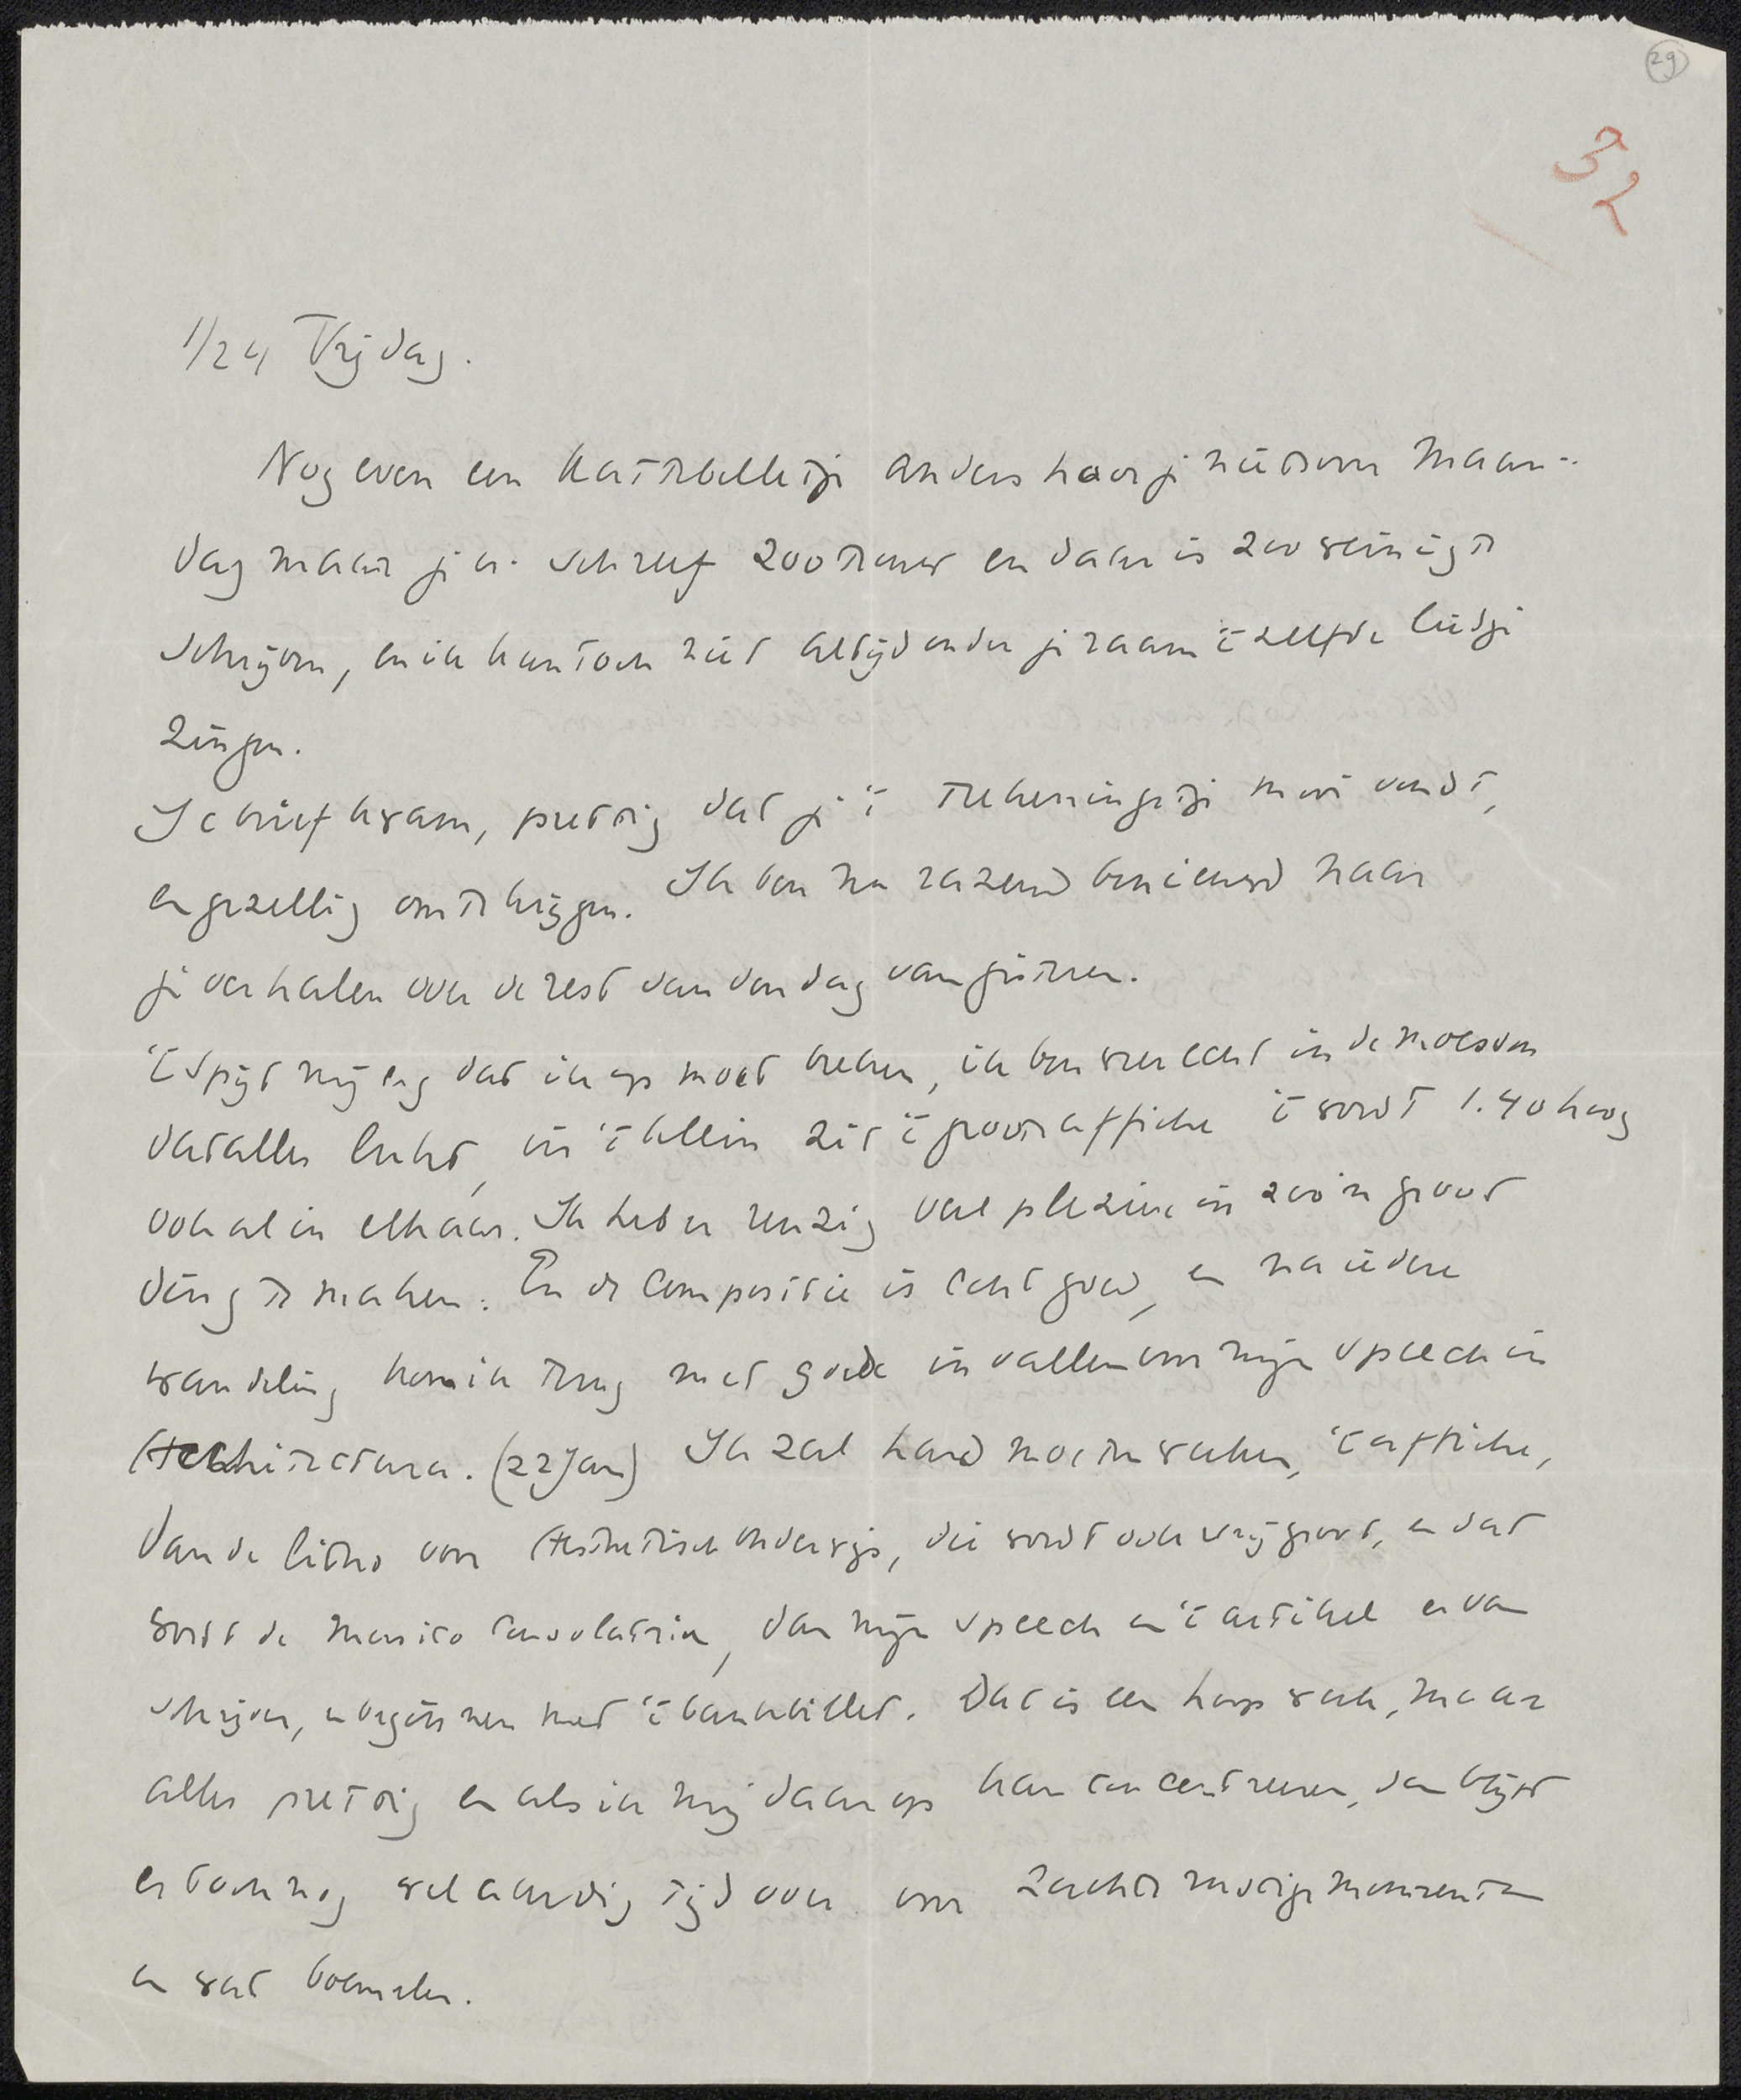 29
32
1/24 Vrijdag.
Nog even een kattebelletje anders hoor je niets voor Maan-
dag maar je br. schreef zoo trouw en daar is zoo weinig te
schrijven, en ik kan toch niet altijd onder je raam 't zelfde liedje
zingen.
Je brief kwam, prettig dat je 't teekeningetje mooi vondt,
en gezellig om te krijgen. Ik ben nu razend benieuwd naar
je verhalen over de rest van den dag van gisteren.
't Spijt mij erg dat ik op moet breken, ik ben weer echt in de moesson
dat alles lukt, in 't klein zit 't groote affiche 't wordt 1.40 hoog
ook al in elkaar. Ik heb er reuzig veel plezier in zoo'n groot
ding te maken. En de compositie is echt goed, en na iedere
wandeling kom ik terug met goede invallen voor mijn speech in
Architectura. (22 Jan) Ik zal hard moeten werken, 't affiche,
dan de litho voor Aesthetisch Onderwijs, die wordt ook vrij groot, en dat
wordt de Musico Consolatrix, dan mijn speech en 't artikel ervan
schrijven, en beginnen met 't bankbillet. Dat is een hoop werk, maar
alles prettig en als ik mij daarop kan concentreeren, dan blijft
er toch nog volhandig tijd over voor zachte rustige momenten
en wat boemelen.